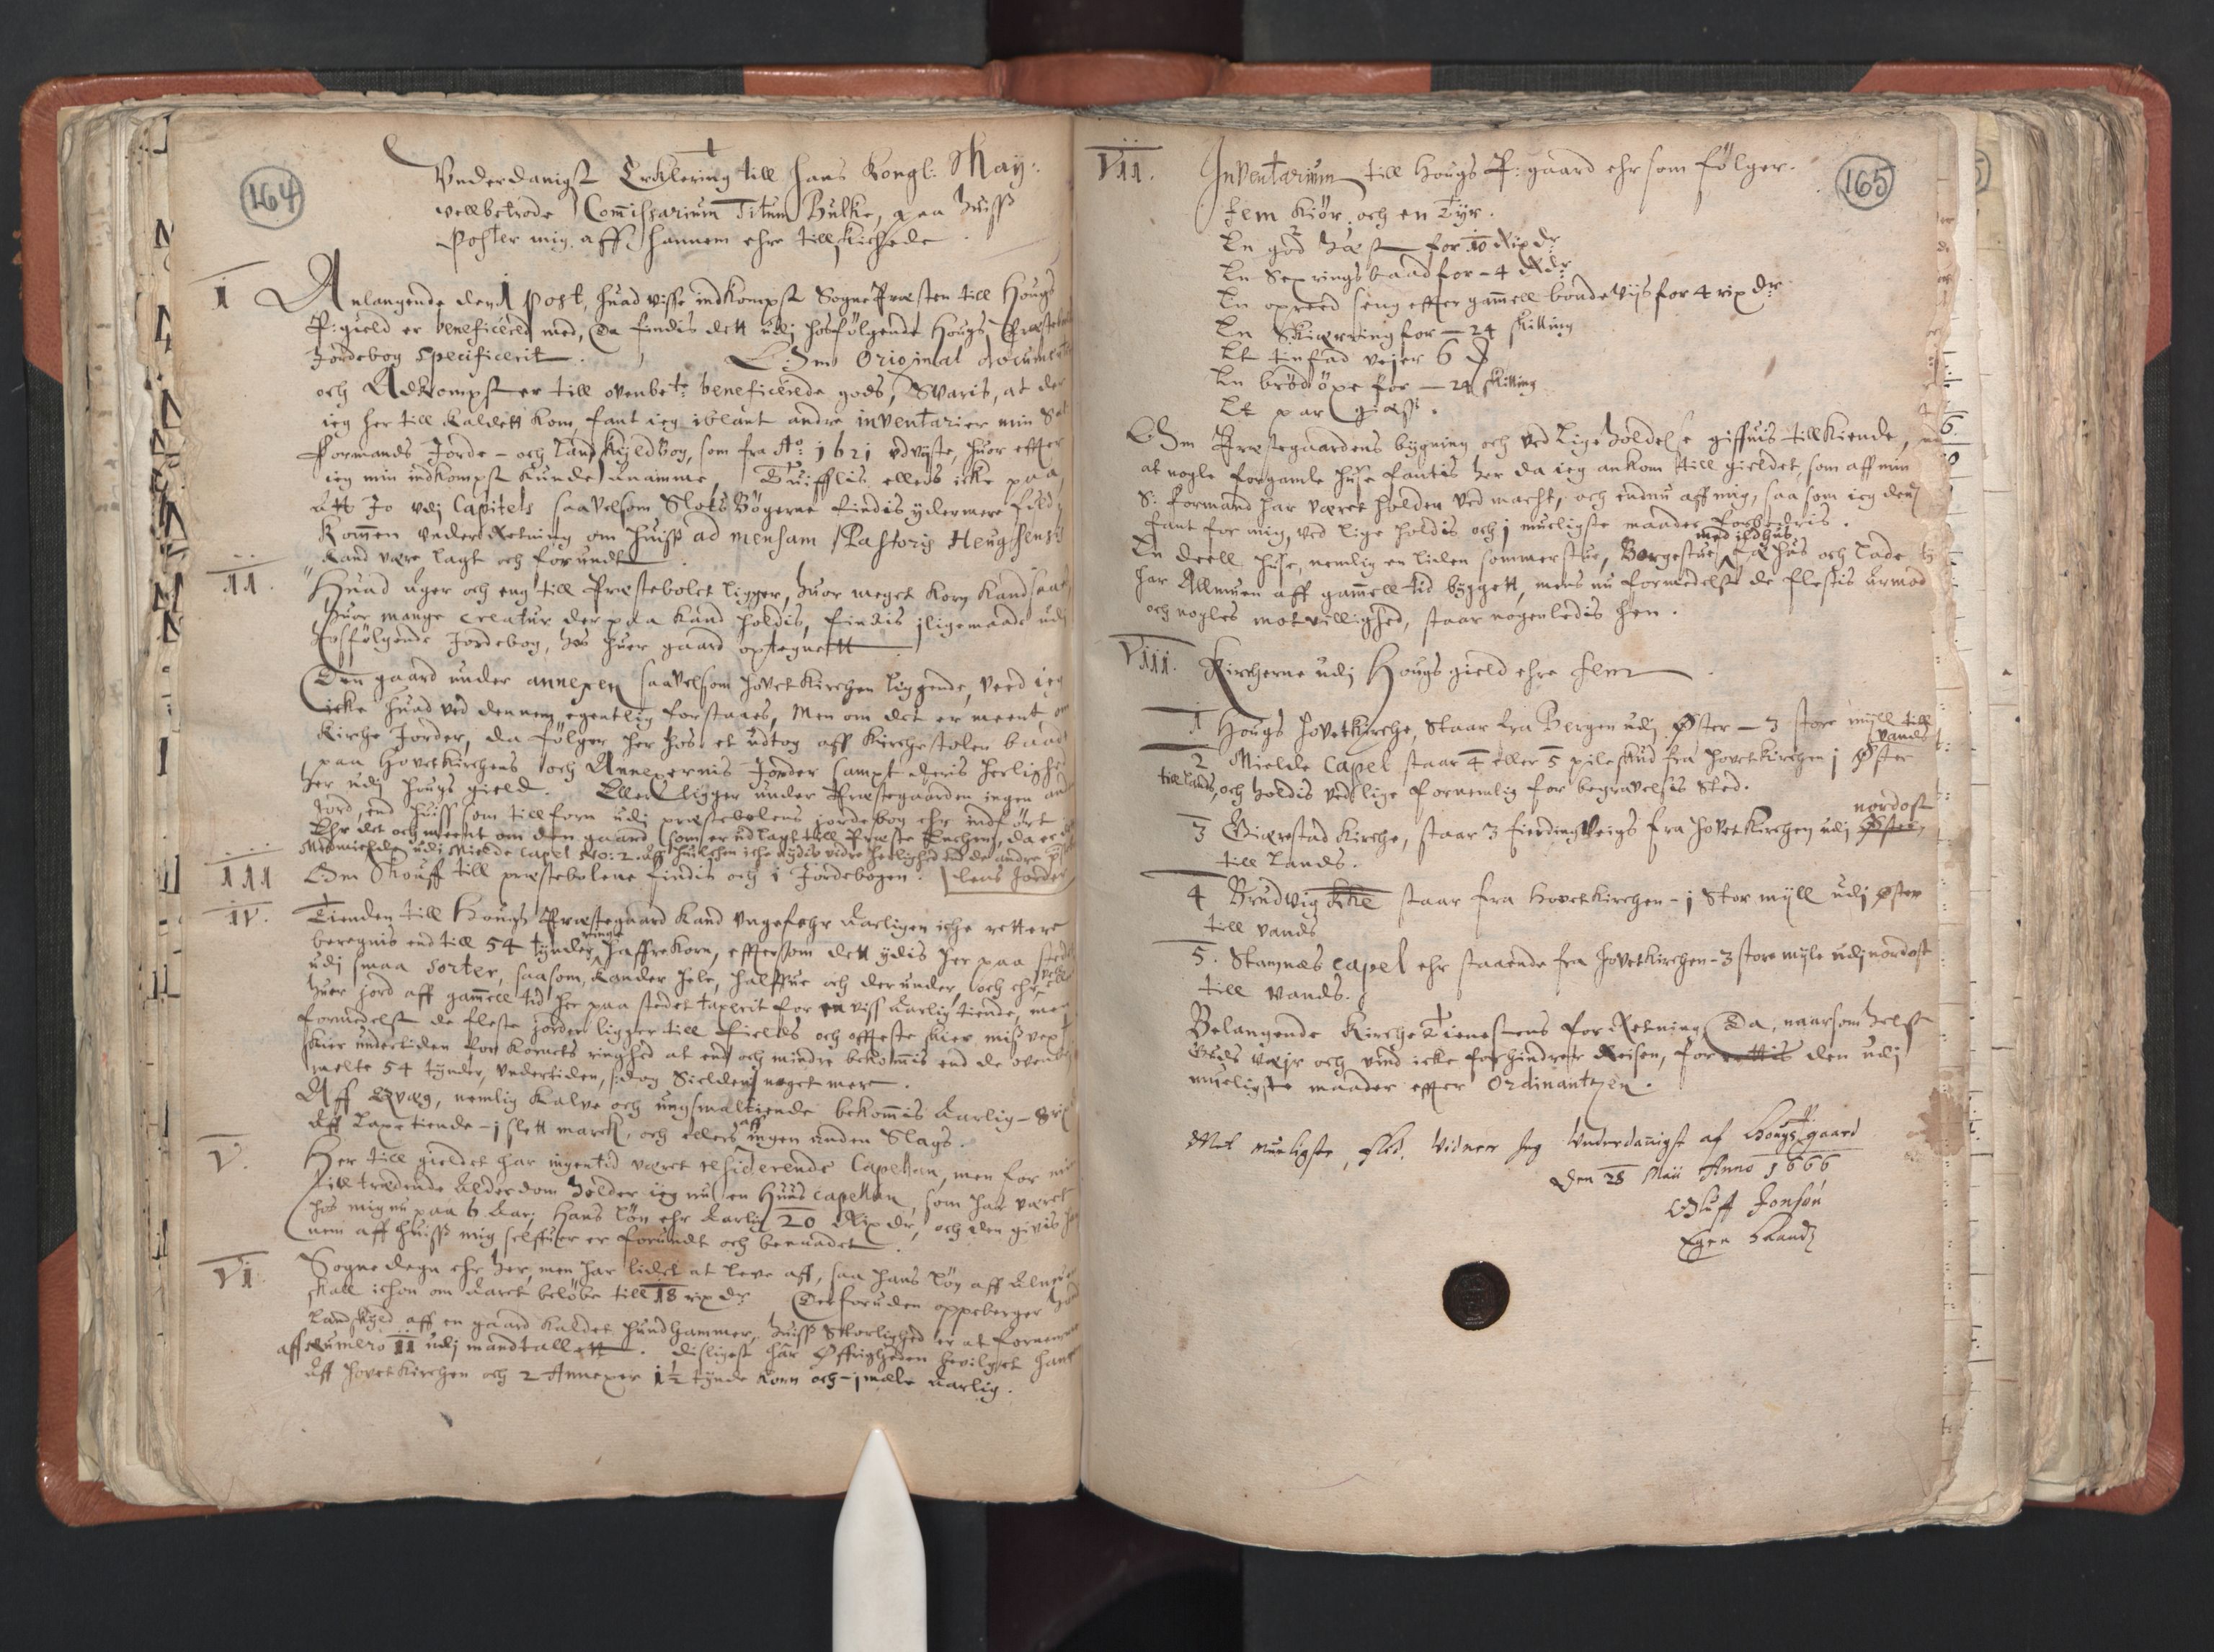 164
Underdanigst Erklering till hans Kongl: May:
velbetrode Commissarium Titum Bulke, paa huiss
Poster mig aff hannem ehre tillskichede
I Anlangende den 1 Post, huad visse indkompst SognePræsten till Hougs
P:gield er beneficeret med, Da findis dett udj hosfølgende Hougs Præsteb
Jordebog specificerit. Om Original documenter
och Adkompster till ovenbete beneficerede gods, Svaris, at der
ieg her till kaldett kom, fant ieg iblant andre inventarier min S:
Formands Jorde- och Landskyldbog, som fra Ao: 1621 udvyste, huor effter
ieg min indkompst kunde anamme, Tuifflis ellers icke paa,
att Jo udj Capitels saavelsom Slots Bøgerne findis ydermere fuld
kommen underRetning om huiss ad mensam Pastoris Hougensis
kand være lagt och forundt.
II. Huad ager och eng till Præstebolet ligger, huor meget korn kand saaes,
huor mange creatur der paa kand holdis, findis jligemaade udj
hosfølgende Jordebog, hos huer gaard optegnett
Den gaard under annexen saavelsom hovetkirchen liggende, veed ieg
icke huad ved dennem egentlig forstaaes, Men om det er meent om
Kirche Jorder, da følger her hos et udtog aff kirchestolen baade
paa Hovetkirchens och Annexernis Jorder sampt deris herlighed
her udj Hougs gield. Ellers ligger under Præstegaarden ingen anden
Jord, end huiss som tillforn udj præstebolens jordebog ehr indført
Ehr det och meent om den gaard som er udlagt till Præste Enchens, da er det
Miemichelen udj Mielde Capel No: 2. aff huilchen iche nydis videre herlighed end de andre præstebo-
III Om Skouff till præstebolene findis och i Jordebogen. lens Jorder
IV. Tienden till Hougs Præstegaard kand ungefehr aarligen iche rettere
beregnis end till 54 tynder ringe haffrekorn, effttersom dett ydis her paa stedet
udj smaa sorter, saasom, kander hele, halffue och der under, och ehr
huer jord aff gammell tid her paa stedet taxerit for en viss aarlig tiende, men
formedelst de fleste jorder ligger till fields och offteste skier missvext
skier undertiden for kornets ringhed at end och mindre bekommis end de ovenb
melte 54 tynder, undertiden, sdog Sielden, noget mere.
Aff Qvæg, nemlig kalve och ungsmaltiende bekommis aarlig - 8 rix
Aff Laxetiende - j slett march, och ellers aff ingen anden Slags.
V. Her till gieldet har ingentid været residerende Capellan, men for min
tilltrædende alderdom holder ieg nu en Huus capellan, som har været
hos mig nu paa 6 Aar; Hans løn ehr aarlig 20 Rix dr, och den givis han
nem aff huiss mig selffuer er forundt och benaadet.
VI. Sognedegn ehr her, men har lidet at leve aff, saa hans løn aff Almuen
skall ichon om aaret beløbe till 18 rix dr. Der foruden oppeberger hand
Landskyld aff en gaard kaldet Hundhammer, huiss Skorlighed er at fornemme
aff numero II udj mandtallett. disligest har Øffrigheden bevilgret hannem
aff hovetkirchen och 2 Annexer 1½ tynde korn och - j mæle aarlig.
165
VII. Inventarium till Hougs P:gaard ehr som følger.
Fem kiør och en Tyr.
En god hæst for 10 Rix dr
En Sexringsbaad for - 4 Rdr
En opreed seng effter gammell bondeviis for 4 rix dr.
En Skierring for - 24 skilling
Et tinfad vejer 6
En brødøxe for - 24 skilling
Et par giæss.
Om Præstegaardens bygning och vedLigeholdelse giffuis tillkiende,
at nogle forgamle huse fantis her da ieg ankom till gieldet, som aff min
S: formand har været holden ved macht, och endnu aff mig, saa som ieg dem
fant for mig, ved lige holdis och j mueligste maader forbedris.
med ildhus
En deell huse, nemlig en liden sommerstue, Borgestue, Fæhus och Lade
har Allmuen aff gammell tid bygget, mens nu formedelst de flestis armod
och nogles motvillighed, staar nogenledis hen.
VIII. Kircherne udj Hougs gield ehre fem
1 Hougs Hovetkirche, Staar fra Bergen udj Øster - 3 store mijll till
vands
2 Mielde Capel staar 4 eller 5 pileskud fra hovetkirchen j Øster
till lands, och holdis ved lige fornemlig for begravelsis sted.
nordost
3 Giærestad kirche, staar 3 fierding veigs fra hovetkirchen udj Øster,
till lands.
4 Brudvig krke staar fra Hovetkirchen - j stor mijll udj øster
till vands
5. Stamnæs capel ehr staaende fra hovetkirchen - 3 store myle udj nordost
till vands.
Belangende KircheTienestens forRetning, Da, naarsomhelst
Guds vejr och vind icke forhindrer Reisen, forrettis den udj
mueligste maader effter Ordinantzen.
Met mueligste flid. Vidner Jeg Underdanigst af Hougs P:gaard
den 28 Maii Anno 1666
Oluff Jonsøn
Egen haand